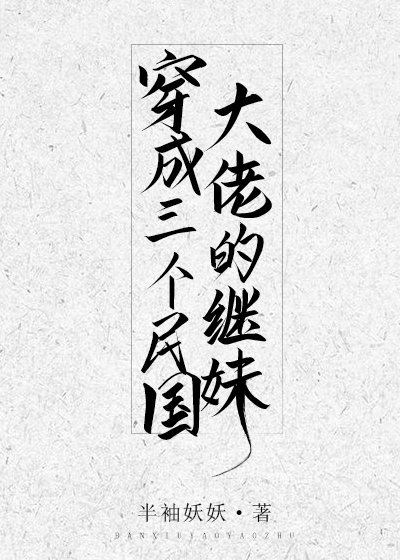 穿成三个民国
大佬的继妹
半袖妖妖·著
BANXIUYAOYAOZHU